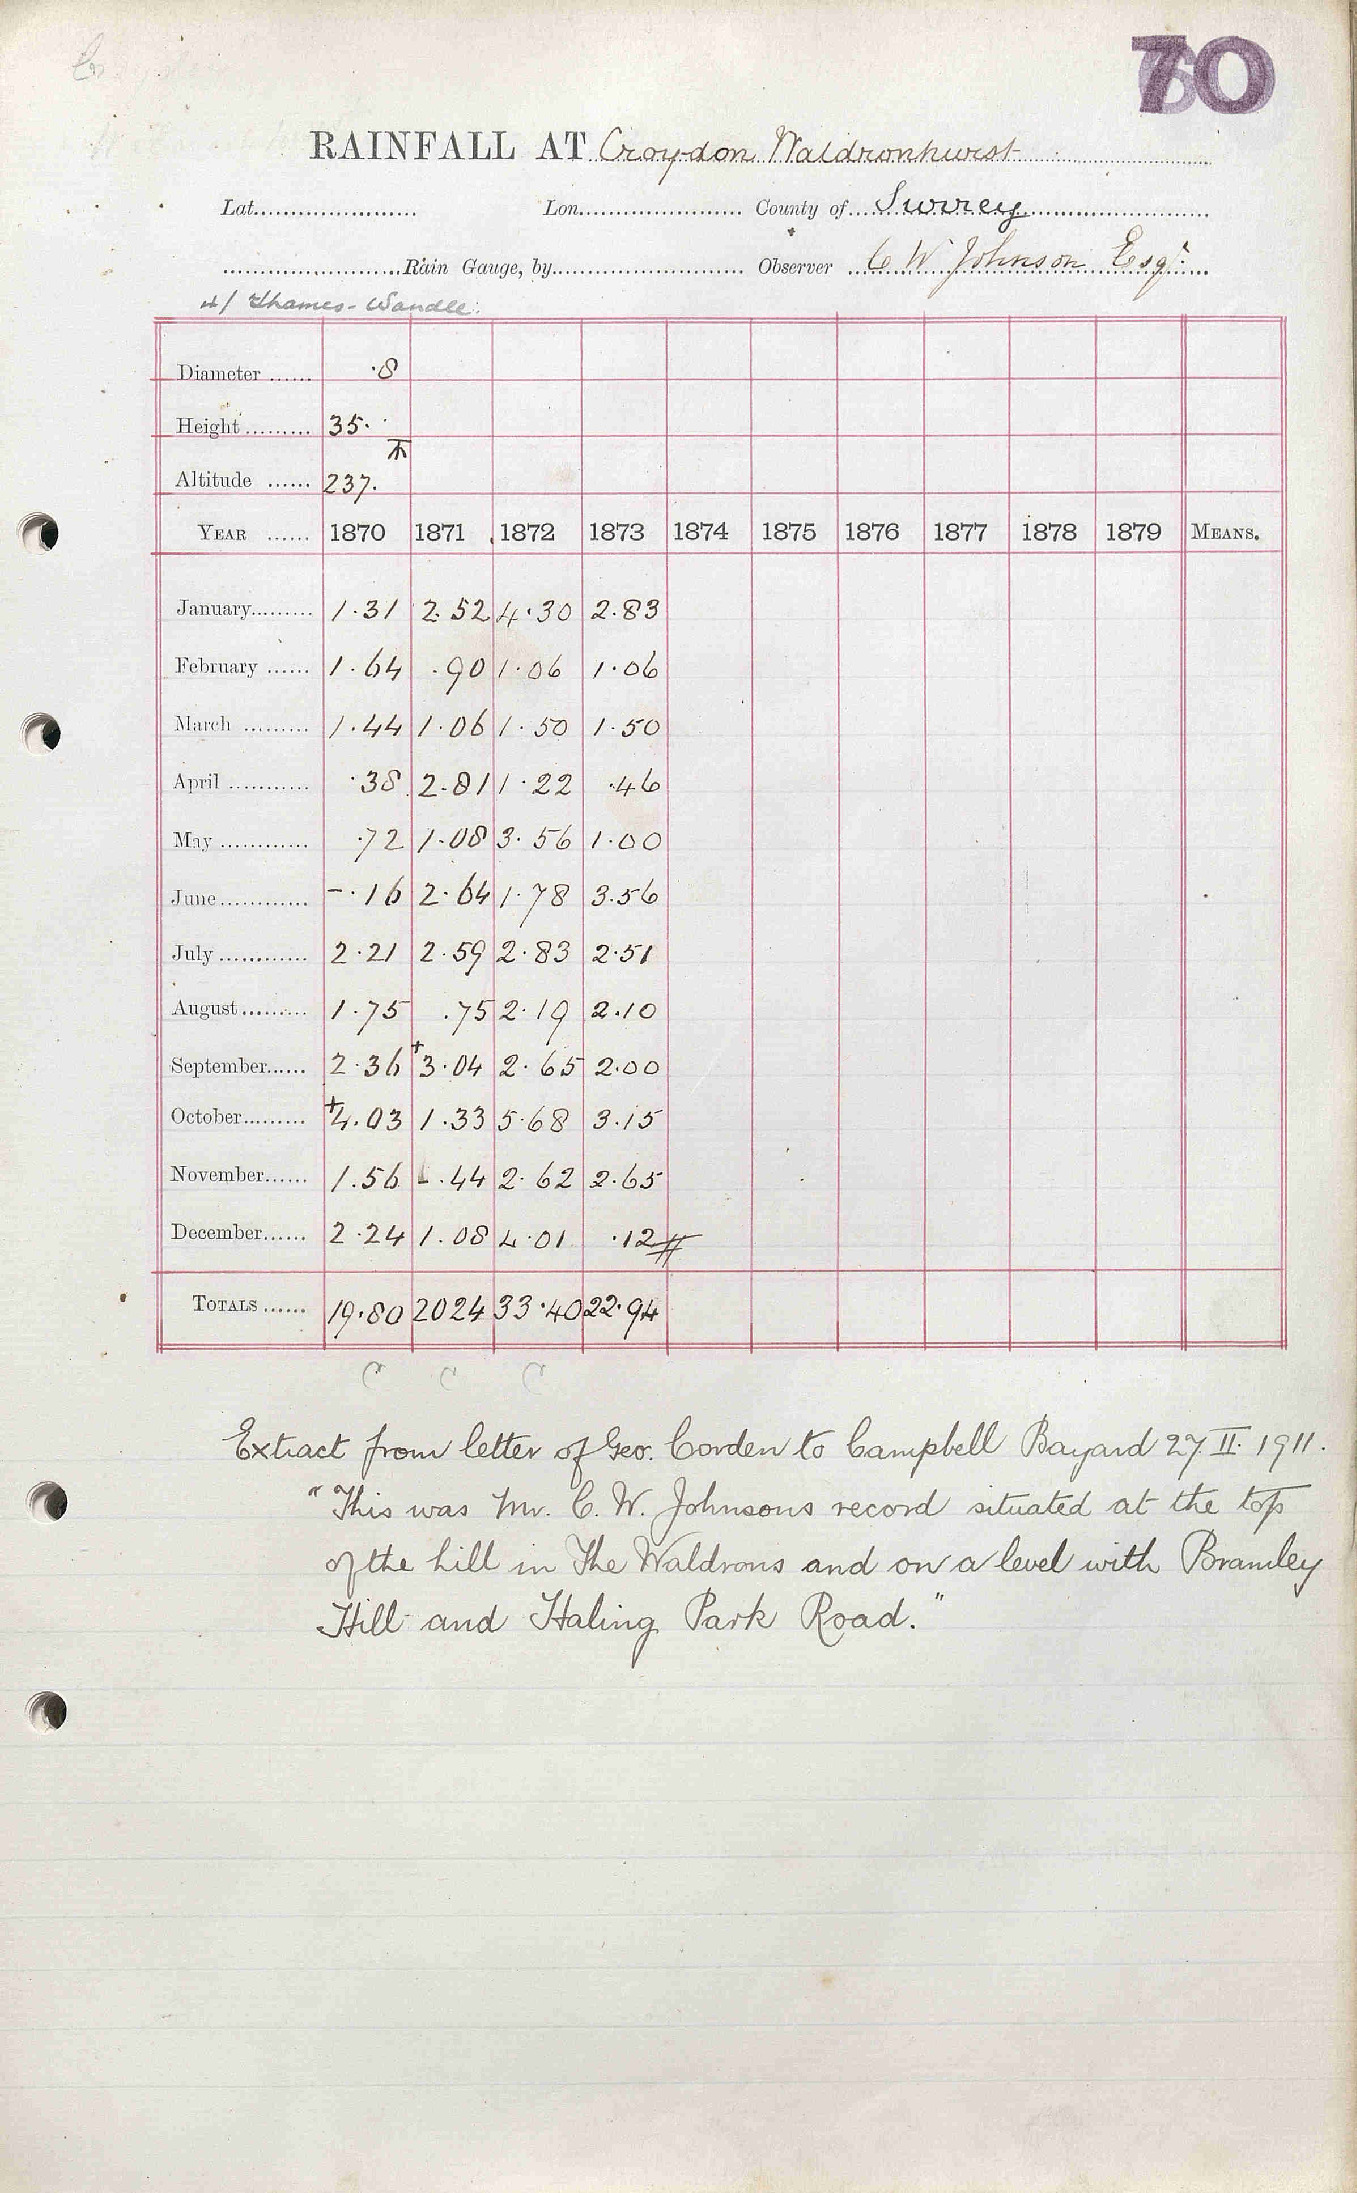 70
RAINFALL AT Croydon Waldronhurst
Lat. Lon. County of Surrey
Rain Gauge, by Observer C W Johnson Esqr
4/ Thames-Wandle.
Diameter ...... ·8
Height ......... 35.
Altitude ...... 237.
YEAR ...... 1870 1871 1872 1873 1874 1875 1876 1877 1878 1879 MEANS.
January......... 1.31 2.52 4.30 2.83
February ...... 1.64 .90 1.06 1.06
March ......... 1.44 1.06 1.50 1.50
April ............ .38 2.81 1.22 .46
May ............ .72 1.08 3.56 1.00
June ............ -.16 2.64 1.78 3.56
July ............ 2.21 2.59 2.83 2.51
August ......... 1.75 .75 2.19 2.10
September...... 2.36 +3.04 2.65 2.00
October ......... +4.03 1.33 5.68 3.15
November...... 1.56 -.44 2.62 2.65
December...... 2.24 1.08 4.01 .12
TOTALS ...... 19.80 2024 33.40 22.94
C C C
Extract from letter of Geo. Corden to Campbell Bayard 27.II.1911.
"This was Mr. C. W. Johnsons record situated at the top
of the hill in The Waldrons and on a level with Bramley
Hill and Haling Park Road."